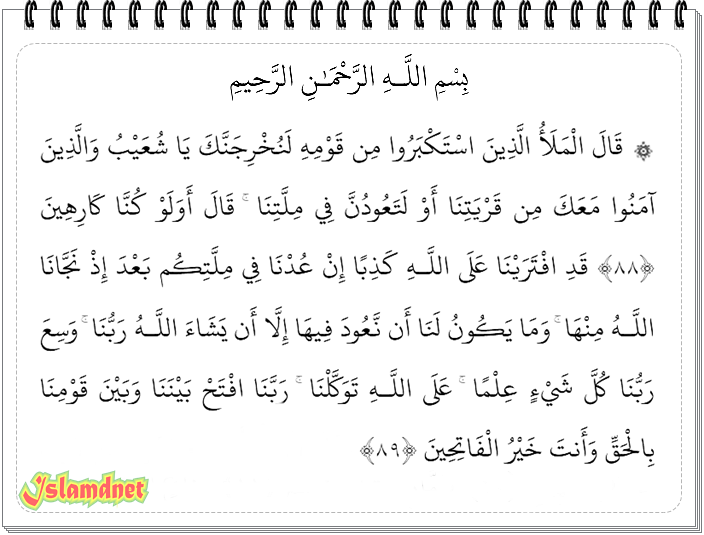 بِسْمِ اللَّـهِ الرَّحْمَـٰنِ الرَّحِيمِ
۞ قَالَ الْمَلَأُ الَّذِينَ اسْتَكْبَرُوا مِن قَوْمِهِ لَنُخْرِجَنَّكَ يَا شُعَيْبُ وَالَّذِينَ
آمَنُوا مَعَكَ مِن قَرْيَتِنَا أَوْ لَتَعُودُنَّ فِي مِلَّتِنَا ۚ قَالَ أَوَلَوْ كُنَّا كَارِهِينَ
﴿٨٨﴾ قَدِ افْتَرَيْنَا عَلَى اللَّـهِ كَذِبًا إِنْ عُدْنَا فِي مِلَّتِكُم بَعْدَ إِذْ نَجَّانَا
اللَّـهُ مِنْهَا ۚ وَمَا يَكُونُ لَنَا أَن نَّعُودَ فِيهَا إِلَّا أَن يَشَاءَ اللَّـهُ رَبُّنَا ۚ وَسِعَ
رَبُّنَا كُلَّ شَيْءٍ عِلْمًا ۚ عَلَى اللَّـهِ تَوَكَّلْنَا ۚ رَبَّنَا افْتَحْ بَيْنَنَا وَبَيْنَ قَوْمِنَا
بِالْحَقِّ وَأَنتَ خَيْرُ الْفَاتِحِينَ ﴿٨٩﴾
Islamdnet